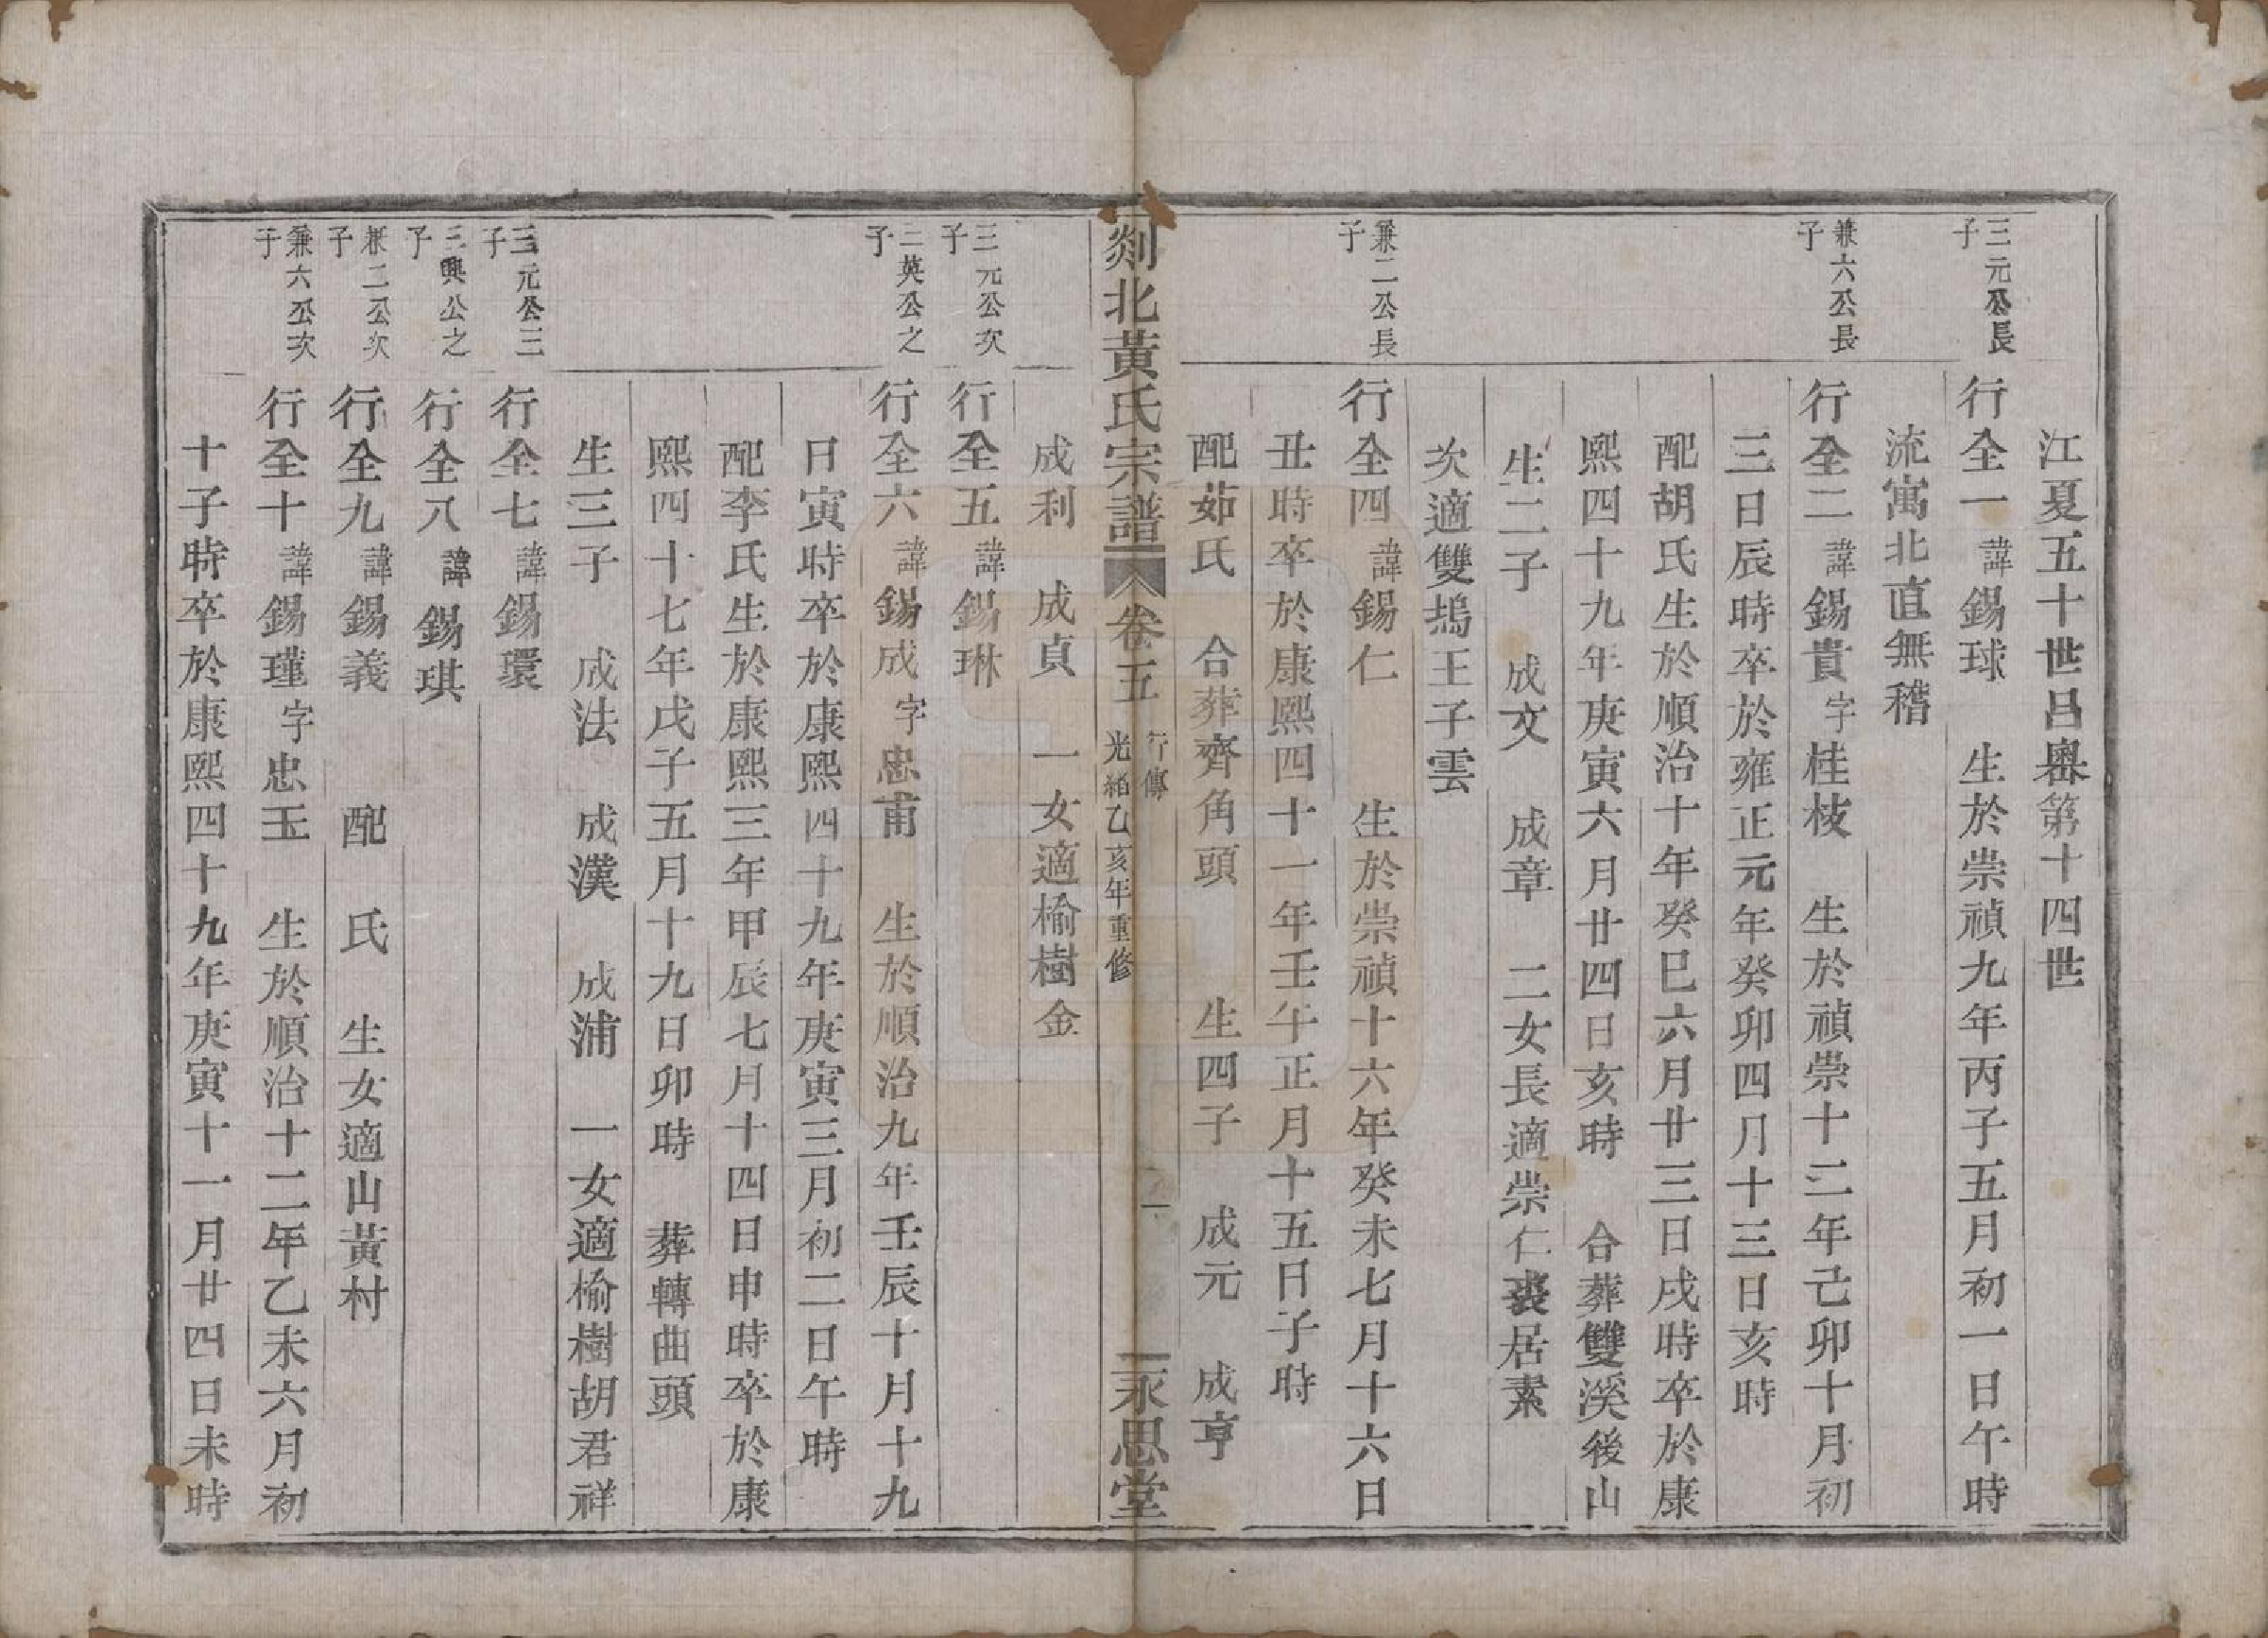 江夏五十世呂奧第十四世
三元公長子
行全一諱錫球　生於崇禎九年丙子五月初一日午時
流寓北直無稽
兼六公長子
行全二諱錫貴字桂枝　生於禎崇十二年己卯十月初
三日辰時卒於雍正元年癸卯四月十三日亥時
配胡氏生於順治十年癸巳六月廿三日戌時卒於康
熙四十九年庚寅六月廿四日亥時　合葬雙溪後山
生二子　成文　成章　二女長適崇仁裘居素
次適雙塢王子雲
兼二公長子
行全四諱錫仁　生於崇禎十六年癸未七月十六日
丑時卒於康熙四十一年壬午正月十五日子時
配茹氏　合葬齊角頭　生四子　成元　成亨
剡北黃氏宗譜　卷五　行傳　光緒乙亥年重修　一　永思堂
成利　成貞　一女適榆樹金
三元公次子
行全五諱錫琳
二英公之子
行全六諱錫成字忠甫　生於順治九年壬辰十月十九
日寅時卒於康熙四十九年庚寅三月初二日午時
配李氏生於康熙三年甲辰七月十四日申時卒於康
熙四十七年戊子五月十九日卯時　葬轉曲頭
生三子　成法　成漢　成浦　一女適榆樹胡君祥
三元公三子
行全七諱錫環
三興公之子
行全八諱錫琪
兼二公次子
行全九諱錫義　配　氏　生女適山黃村
兼六公次子
行全十諱錫瑾字忠玉　生於順治十二年乙未六月初
十子時卒於康熙四十九年庚寅十一月廿四日未時